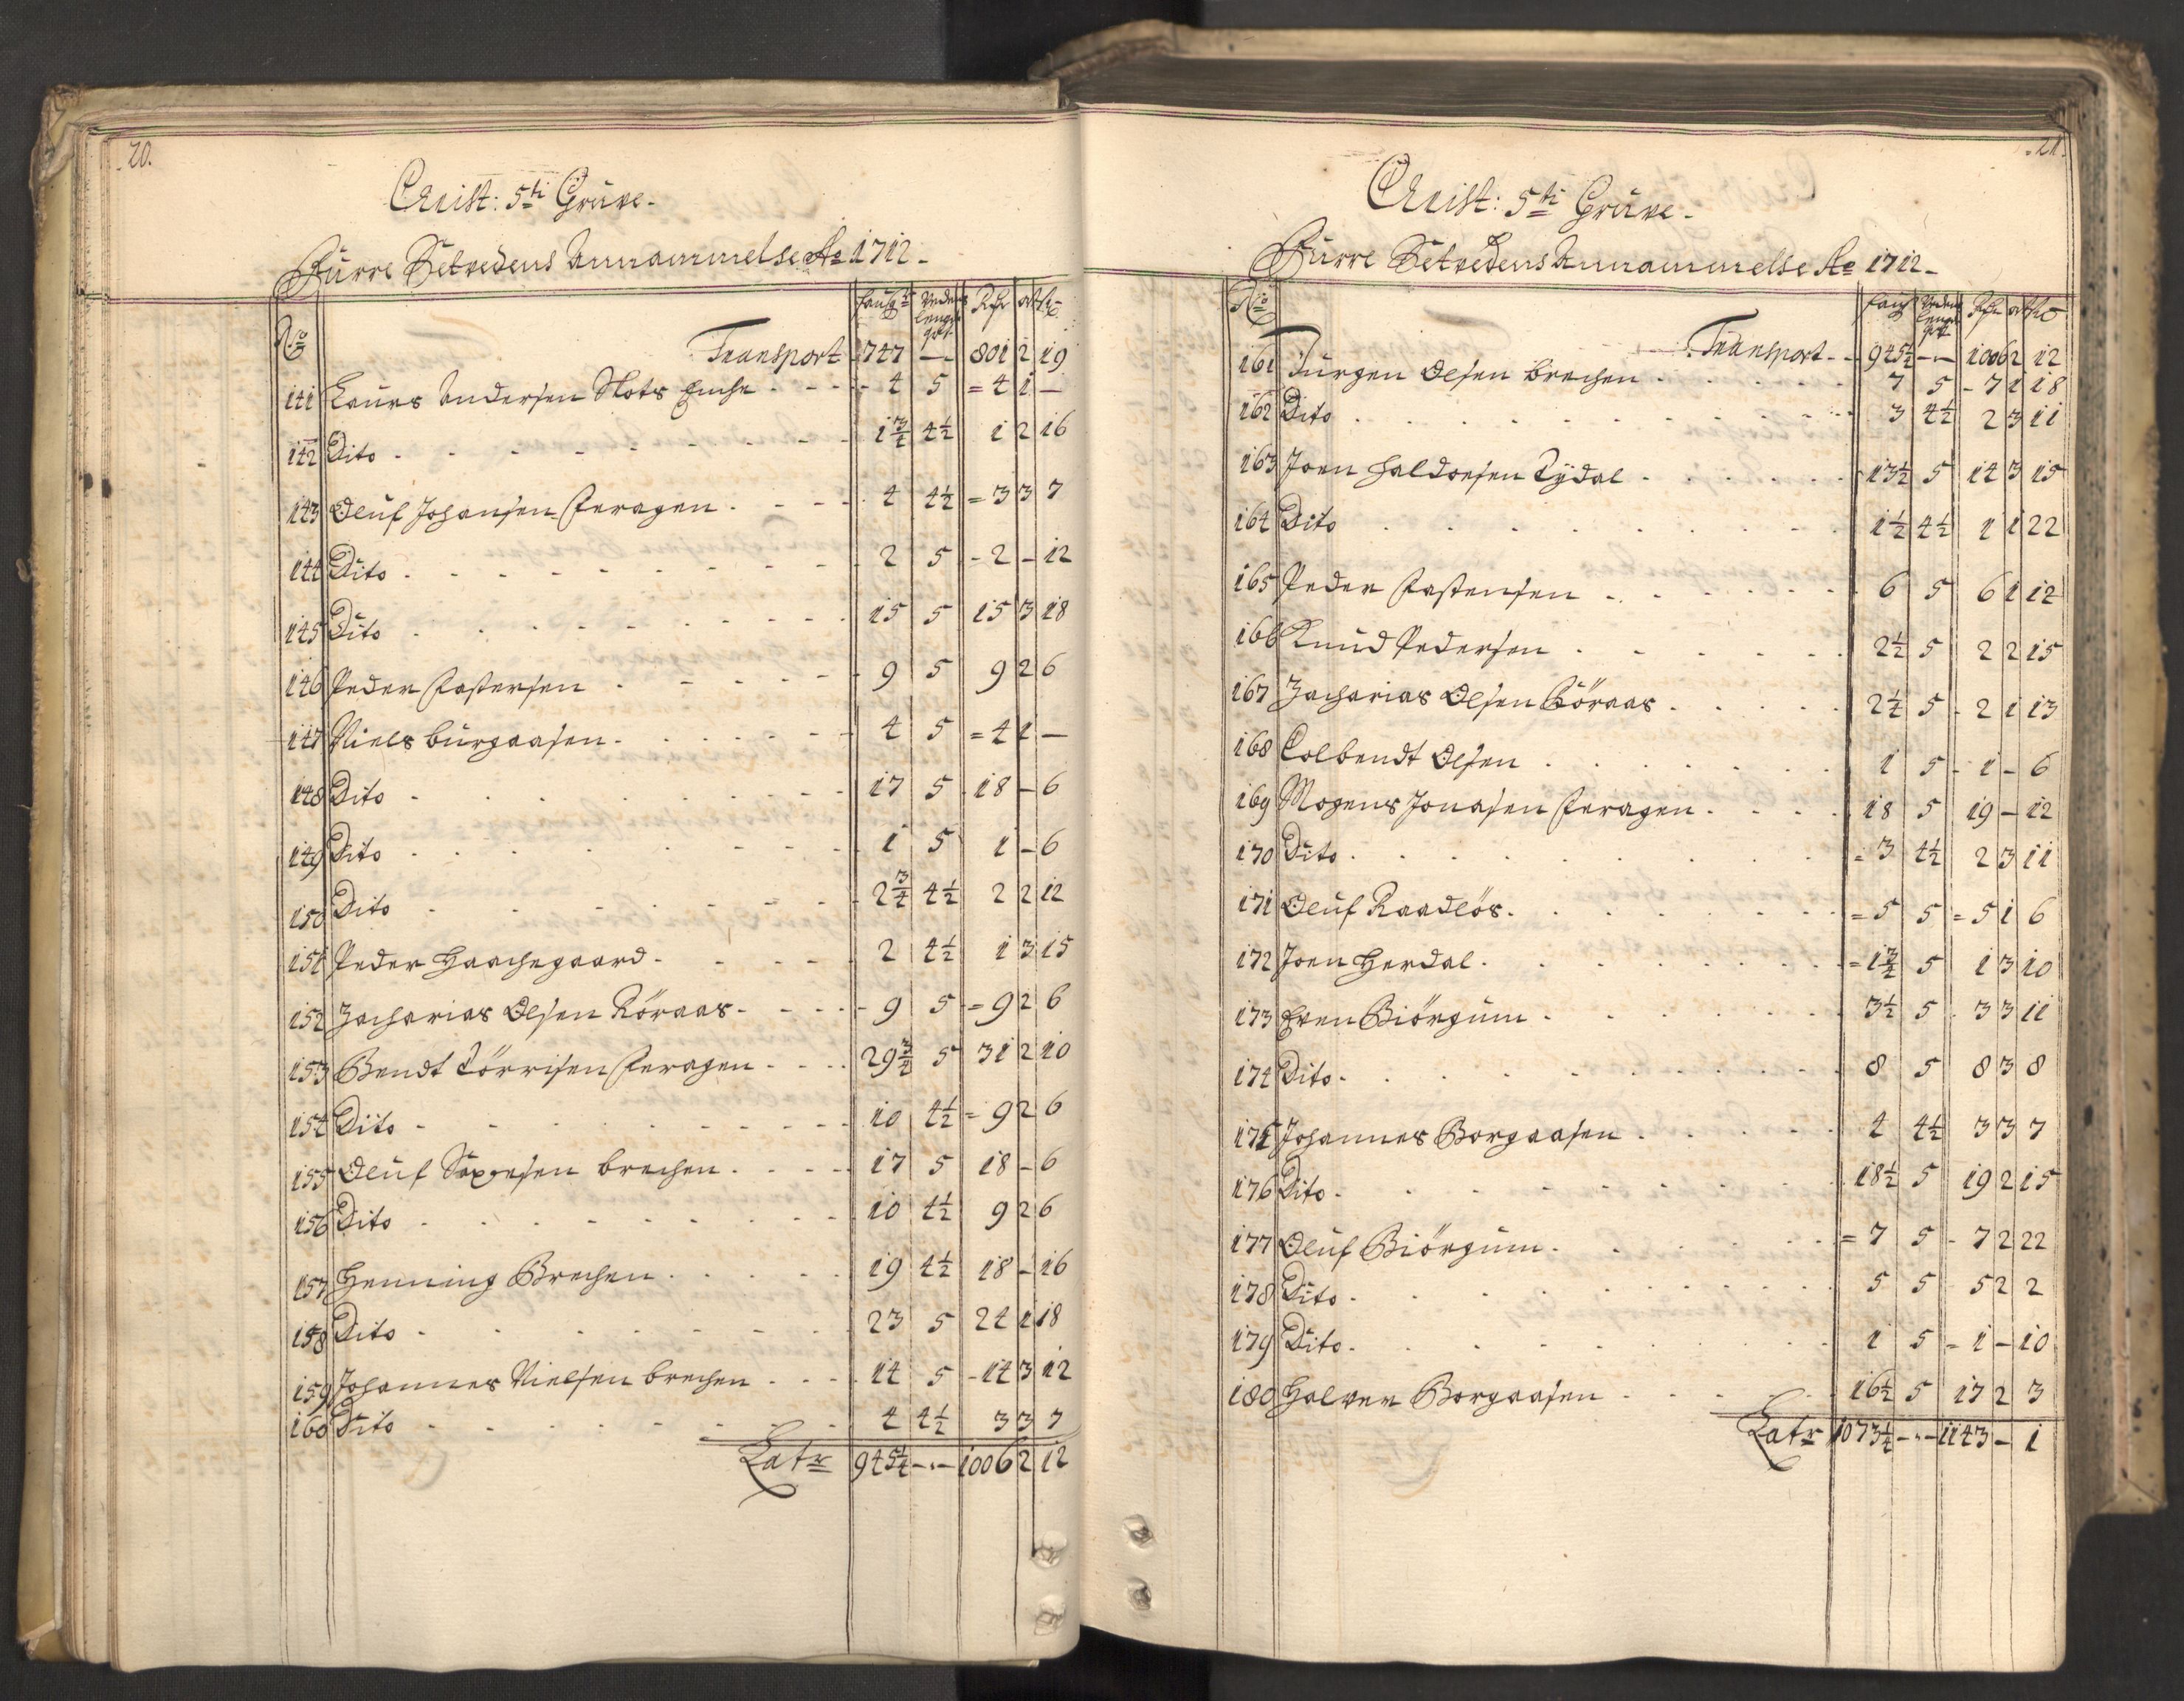 20.
Christ: 5ti Grüve.
Fürre Setvedens Annammelse Ao 1712.
No
faufg Vedens lengde qvt. Rdr ort ß
Transport 747 — 801 2 19
141 Laurs Andersen Skots Enche - - - 4 5 = 4 1 —
142 Dito - - - 1 3/4 4 1/2 1 2 16
143 Oluf Johansen Feragen - - - 4 4 1/2 = 3 3 7
144 Dito - - - 2 5 - 2 - 12
145 Dito - - - 15 5 15 3 18
146 Peder Fastersen - - - 9 5 9 2 6
147 Niels Burgaasen - - - 4 5 = 4 1 —
148 Dito - - - 17 5 18 - 6
149 Dito - - - 1 5 1 - 6
150 Dito - - - 2 3/4 4 1/2 2 2 12
151 Peder Haachegaard - - - 2 4 1/2 1 3 15
152 Zacharias Olsen Röraas - - - 9 5 = 9 2 6
153 Bendt Törrisen Feragen - - - 29 3/4 5 31 2 10
154 Dito - - - 10 4 1/2 = 9 2 6
155 Oluf brechen - - - 17 5 18 - 6
156 Dito - - - 10 4 1/2 9 2 6
157 Henning Brechen - - - 19 4 1/2 18 - 16
158 Dito - - - 23 5 24 1 18
159 Johannes Nielsen brechen - - - 14 5 - 14 3 12
160 Dito - - - 4 4 1/2 3 3 7
Latr 945 1/4 - - 1006 2 12
21.
Christ: 5ti Grüve.
Fürre Setvedens Annammelse Ao 1712.
No
fauf Vedens lengde qvt Rdr ort ß
Transport - - 945 1/4 - - 1006 2 12
161 Jürgen Olsen brechen - - - 7 5 - 7 1 18
162 Dito - - - 3 4 1/2 2 3 11
163 Joen Haldorsen Tÿdal - - - 13 1/2 5 14 3 15
164 Dito - - - 1 1/2 4 1/2 1 1 22
165 Peder Fastensen - - - 6 5 6 1 12
166 Knud Pedersen - - - 2 1/2 5 2 2 15
167 Zacharias Olsen Röraas - - - 2 1/4 5 - 2 1 13
168 Colbendt Olsen - - - 1 5 - 1 - 6
169 Mogens Jonasen Feragen - - - 18 5 19 - 12
170 Dito - - - = 3 4 1/2 2 3 11
171 Oluf Raadlös - - - = 5 5 = 5 1 6
172 Joen Herdal - - - = 1 3/4 5 1 3 10
173 Even Biörgum - - - 3 1/2 5 3 3 11
174 Dito - - - 8 5 8 3 8
175 Johannes Borgaasen - - - 4 4 1/2 3 3 7
176 Dito - - - 18 1/2 5 19 2 15
177 Oluf Biörgum - - - = 7 5 - 7 2 22
178 Dito - - - 5 5 5 2 2
179 Dito - - - 1 5 = 1 - 10
180 Halvor Borgaasen - - - 16 1/2 5 17 2 3
Latr 1073 1/4 - - 1143 - 1